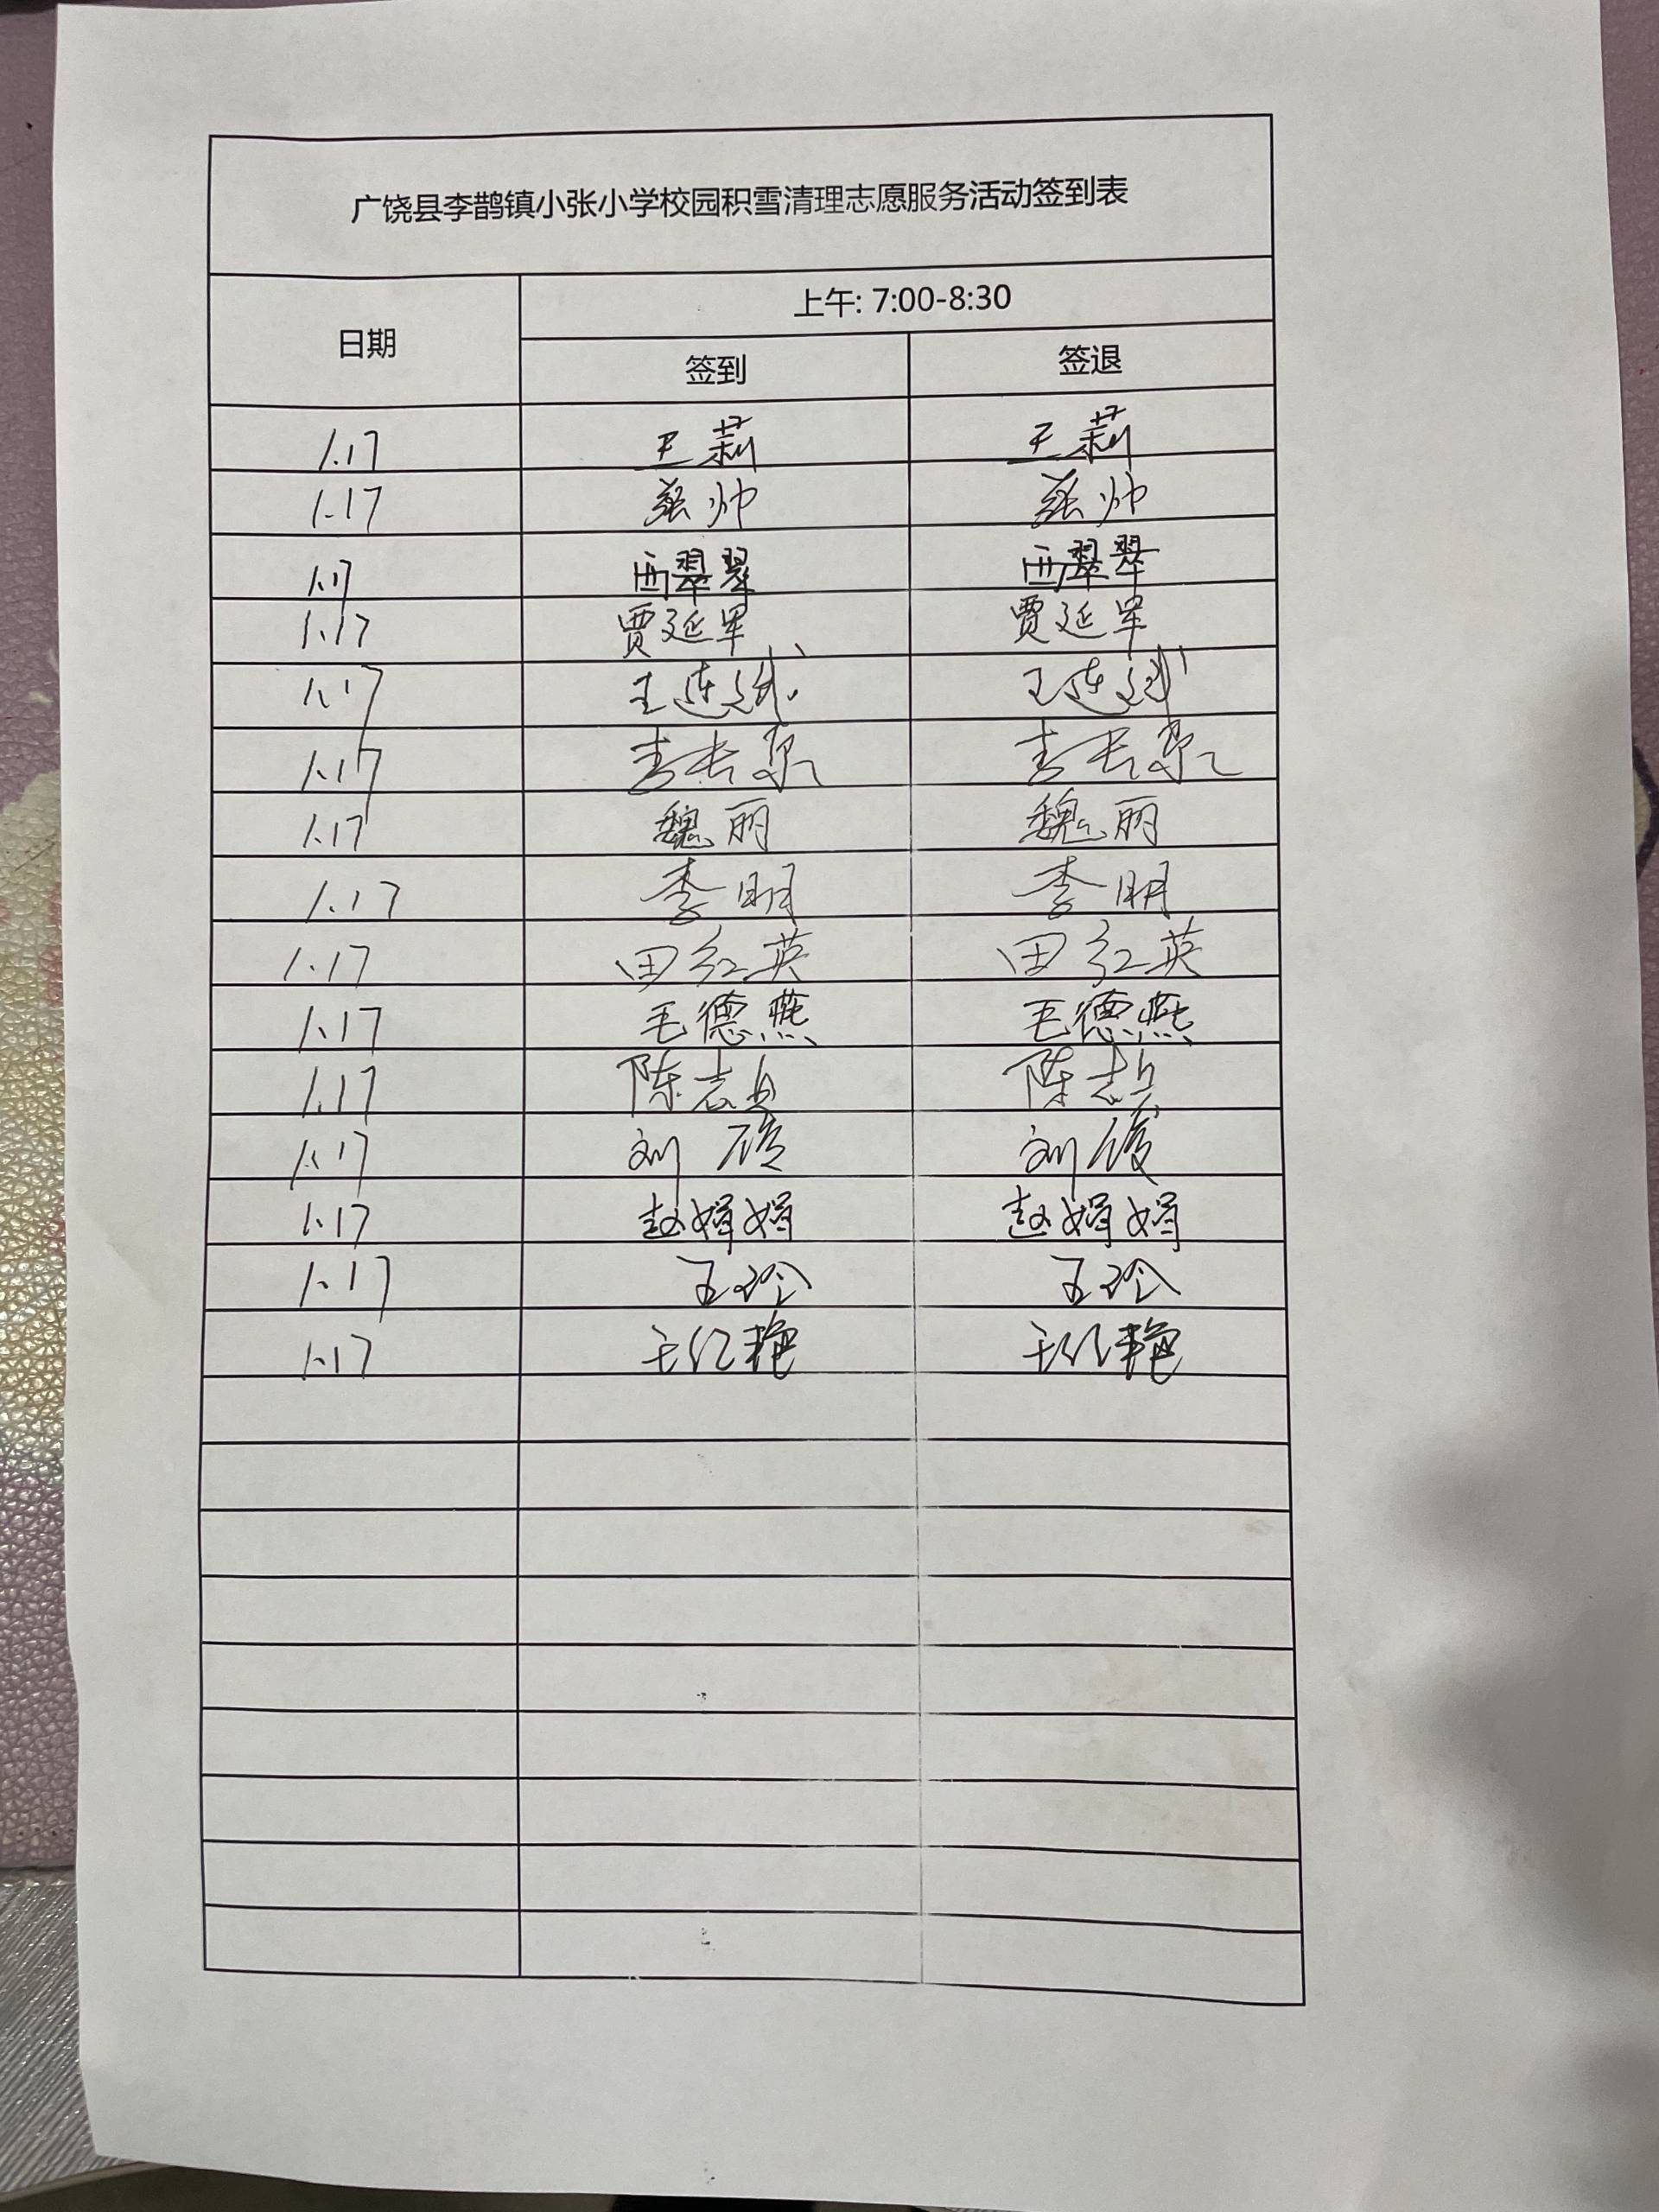 广饶县李鹊镇小张小学校园积雪清理志愿服务活动签到表
日期 上午: 7:00-8:30
签到 签退
1.17 王莉 王莉
1.17 张帅 张帅
1.17 西翠翠 西翠翠
1.17 贾延军 贾延军
1.17 王连斌 王连斌
1.17
1.17 魏丽 魏丽
1.17 李明 李明
1.17 田红英 田红英
1.17 毛德燕 毛德燕
1.17 陈志贞 陈志贞
1.17 刘 刘
1.17 赵娟娟 赵娟娟
1.17 王玲 王玲
1.17 王红艳 王红艳